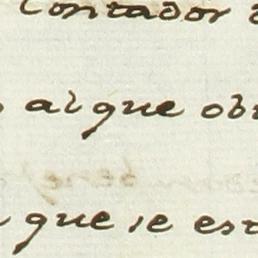 Contador
al que ob
que se est